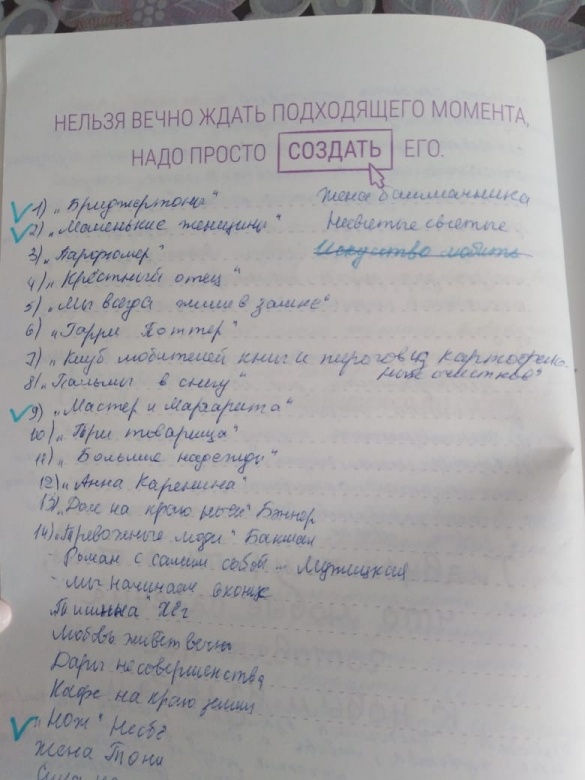 НЕЛЬЗЯ ВЕЧНО ЖДАТЬ ПОДХОДЯЩЕГО МОМЕНТА,
НАДО ПРОСТО СОЗДАТЬ ЕГО.
1) „Бриджертоны"
2) „Маленькие женщины"
3) „Парфюмер"
4) „Крёстный отец"
5) „Мы всегда жили в замке"
6) „Гарри Поттер"
7) „Клуб любителей книг и пирогов из картофель-
ных очистков"
8) „Пальмы в снегу"
9) „Мастер и Маргарита"
10) „Три товарища"
11) „Большие надежды"
12) „Анна Каренина"
13) „Дом на краю ночи" Бэннер
14) „Тревожные люди" Бакман
- Роман с самим собой - Мужицкая
- Мы начинаем в конце
„Тишина" Хёг
Любовь живёт вечно
Дары несовершенства
Кафе на краю земли
„Нож" Несбё
Жена
Жена башмачника
Несвятые святые
Искусство любить